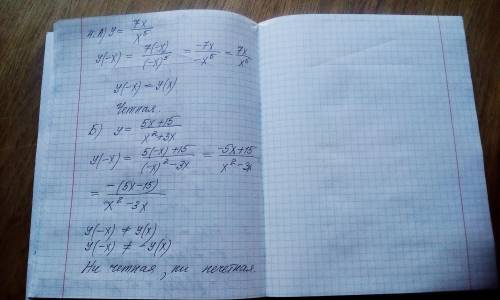 4. А) y = 7x / x⁵
y(-x) = 7(-x) / (-x)⁵ = -7x / -x⁵ = 7x / x⁵
y(-x) = y(x)
Четная.
Б) y = 5x+15 / x²+3x
y(-x) = 5(-x)+15 / (-x)²-3x = -5x+15 / x²-3x
= -(5x-15) / x²-3x
y(-x) ≠ y(x)
y(-x) ≠ -y(x)
Ни четная, ни нечетная.